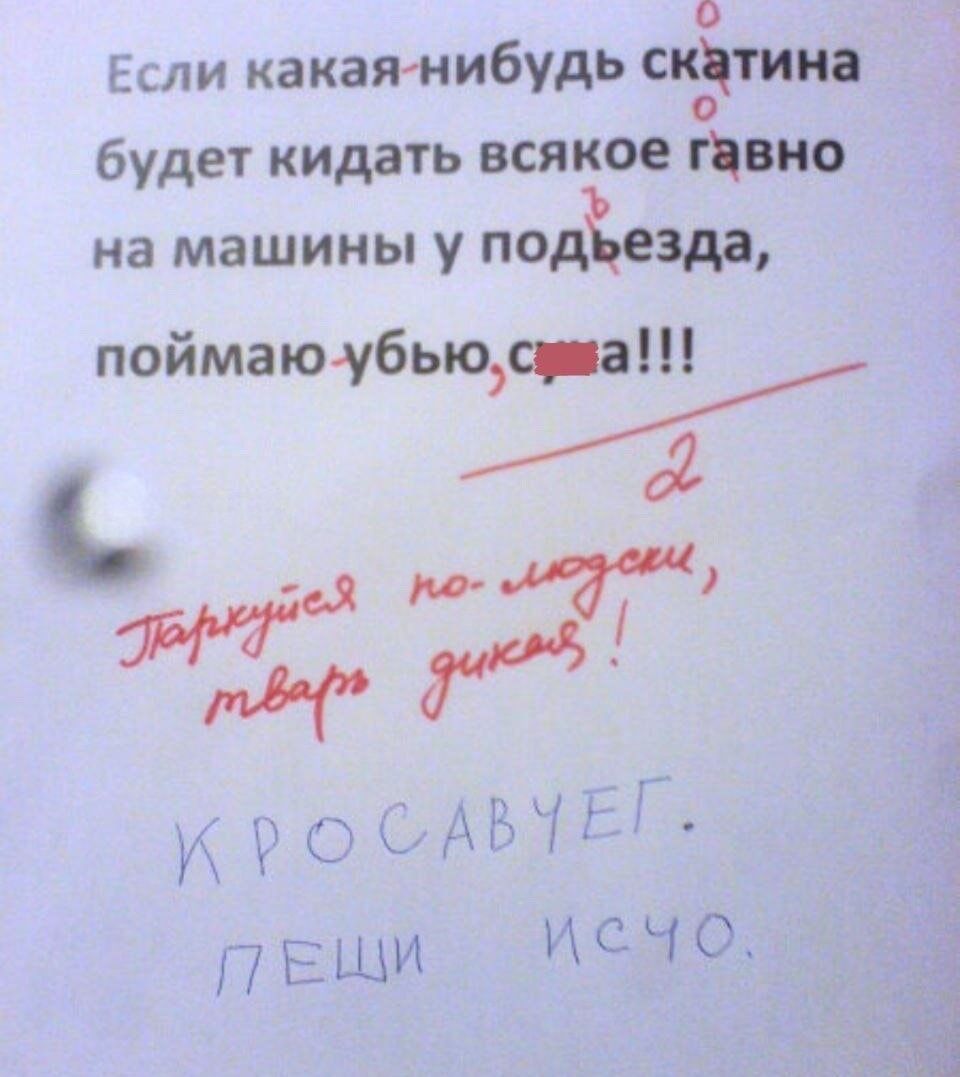 Если какая-нибудь скатина
будет кидать всякое гавно
на машины у подьезда,
поймаю-убью, с а!!!
2
Паркуйся по-людски,
тварь дикая!
КРОСАВЧЕГ.
ПЕШИ ИСЧО.